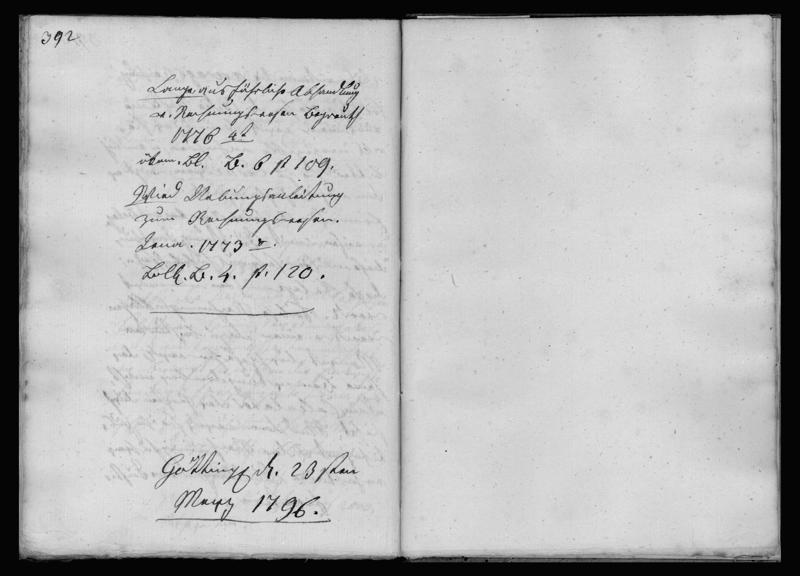 392
Lange ausführliche Abhandlung
v. Rechnungswesen Bayreuth
1776 4t
ökon. Bl. B. 6 p 109.
Wied Uebungsanleitung
zum Rechnungswesen.
Jena. 1773 8.
B. 4. p. 120.
Götting d. 23sten
Merz 1796.